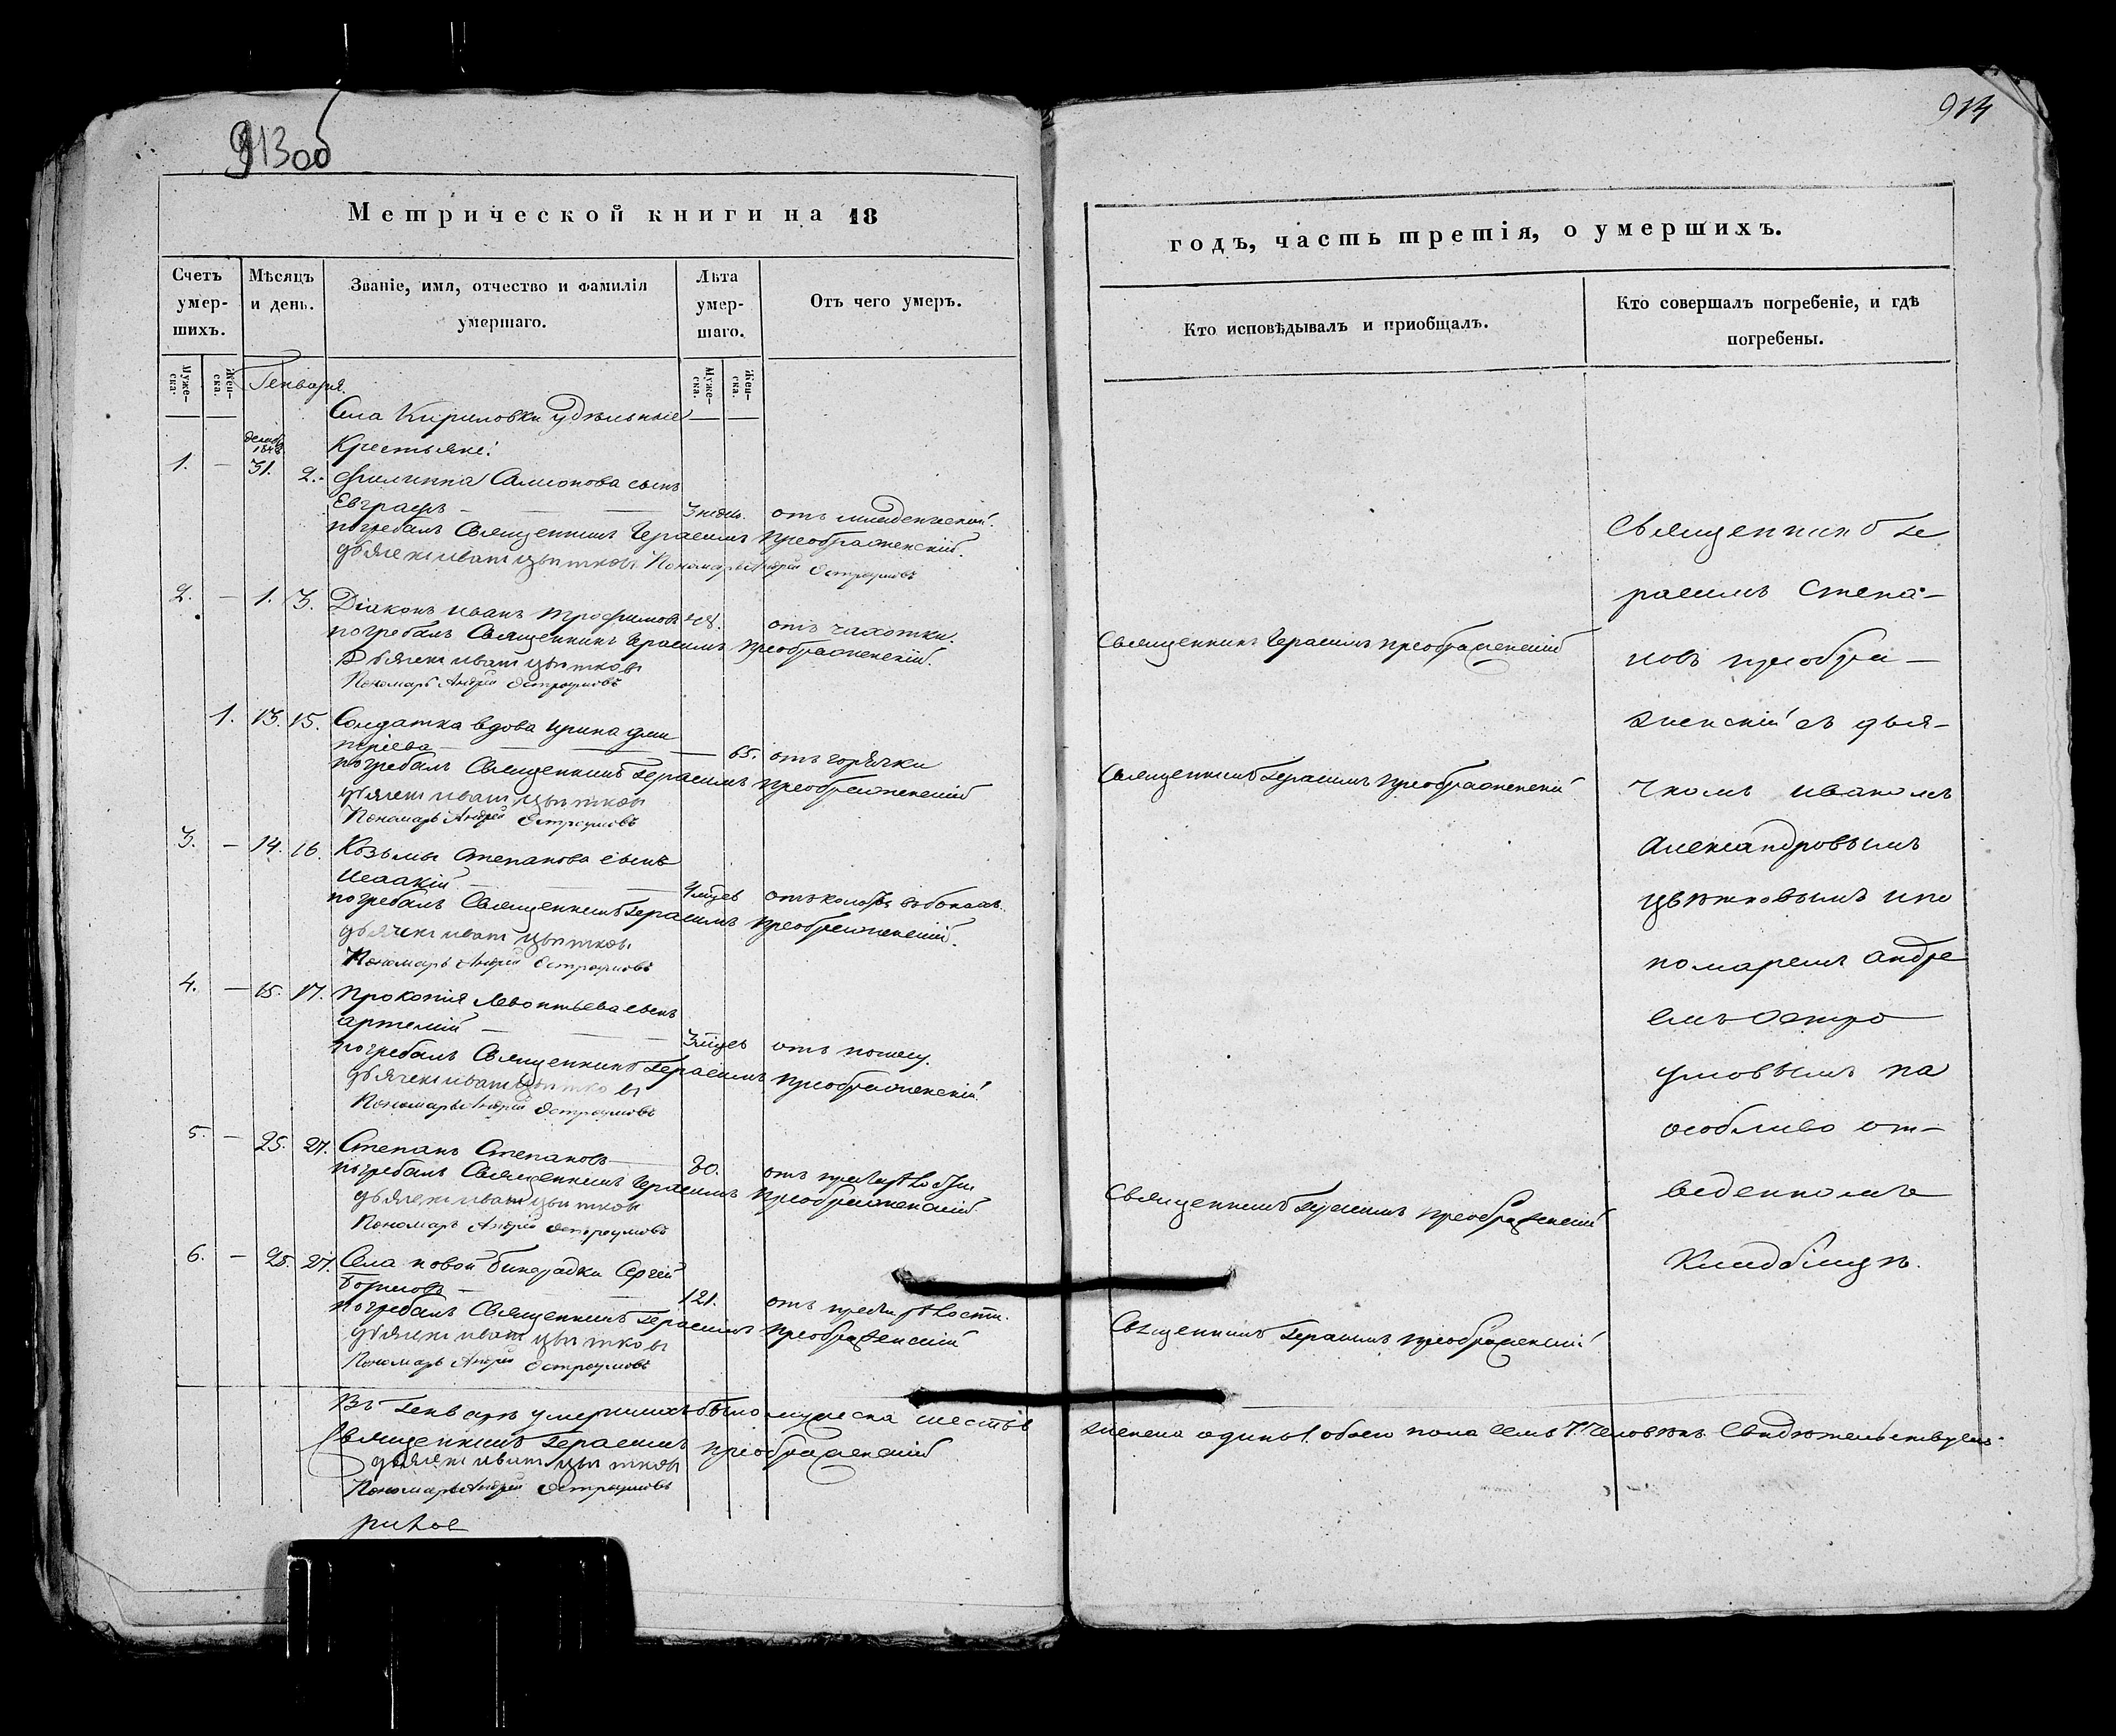 913об
914
Метрической книги на 18
годъ, часть третія, о умершихъ.
Счетъ умер-шихъ.
Мѣсяцъ и день.
Званіе, имя, отчество и фамилія умершаго.
Лѣта умер-шаго.
Отъ чего умеръ.
Кто исповѣдывалъ и приобщалъ.
Кто совершалъ погребеніе, и гдѣ погребены.
Муже-ска.
Жен-ска.
Муже-ска.
Жен-ска.
Генваря
Села Кириловки удѣльные
Крестьяне:
1. — 31. 2. Филиппа Самсонова сынъ
Евграфъ — — 3 неди. отъ младенческой.
погребалъ Священникъ Герасимъ Преображенскій.
дьячекъ иванъ цвѣтковъ Пономарь Андрей Остроумовъ
2. — 1. 3. Діаконъ иванъ трофимовъ 48. отъ чахотки.
погребалъ Священникъ Герасимъ Преображенскій.
Дьячекъ иванъ цвѣтковъ
Пономарь Андрей Остроумовъ
Священникъ Герасимъ преображенскій
1. 13. 15. Солдатка вдова ирина дми
тріева — — 65. отъ горячки
погребалъ Священникъ Герасимъ Преображенскій
дьячекъ иванъ цвѣтковъ
Пономарь Андрей Остроумовъ
Священникъ Герасимъ Преображенскій
3. — 14. 16. Козьмы Степанова сынъ
Исаакій — — отъ колотья въ бокахъ.
погребалъ Священникъ Герасимъ Преображенскій.
дьячекъ иванъ цвѣтковъ
Пономарь Андрей Остроумовъ
4. — 15. 17. Прокопія Леонтьева сынъ
артемій — — 3 мцев отъ поносу.
погребалъ Священникъ Герасимъ Преображенскій
дьячекъ иванъ цвѣтковъ
Пономарь Андрей Остроумовъ
5. — 25. 27. Степанъ Степановъ — отъ
погребалъ Священникъ Герасимъ Преображенскій
дьячекъ иванъ цвѣтковъ
Пономарь Андрей Остроумовъ
Священникъ Герасимъ преображенскій
6. — 25. 27. Села новой бинарадки Сергей
Борисовъ — — 121. отъ
погребалъ Священникъ Герасимъ Преображенскій
дьячекъ иванъ цвѣтковъ
Пономарь Андрей Остроумовъ
Священникъ Герасимъ преображенскій
Священникъ Ге
расимъ Степа-
новъ преобра-
женскій съ дья-
чкомъ иваномъ
Александровымъ
цвѣтковымъ и по
номаремъ андре
емъ Остро
умовымъ на
особливо от-
веденномъ
Кладбищѣ.
Въ Генварѣ умершихъ было мужеска шесть 6 женска одинъ 1. обоего пола семь 7. человѣкъ Свидѣтельствуемъ.
Священникъ Герасимъ преображенскій
дьячекъ иванъ цвѣтковъ
Пономарь Андрей Остроумовъ